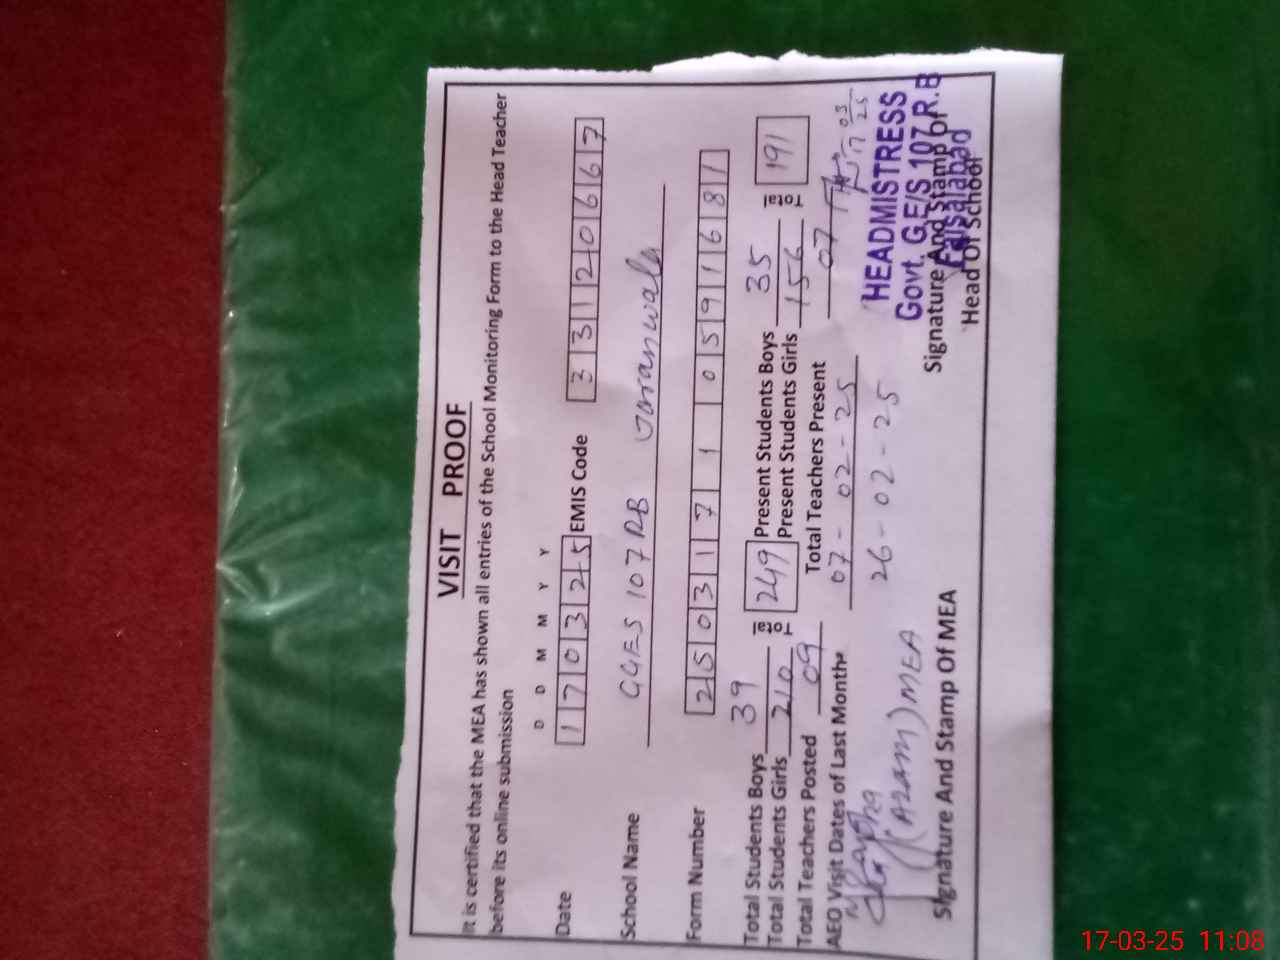 VISIT PROOF
It is certified that the MEA has shown all entries of the School Monitoring Form to the Head Teacher
before its online submission
D D M M Y Y
Date 170325 EMIS Code 33120667
School Name GGES 107 RB Jaranwala
Form Number 2503171 1 0591681
Total Students Boys 39 Total 249 Present Students Boys 35 Total 191
Total Students Girls 210 Present Students Girls 156
Total Teachers Posted 09 Total Teachers Present 07
AEO Visit Dates of Last Month 07-02-25
26-02-25
(Azam) MEA
Signature And Stamp Of MEA
17 03 25
HEADMISTRESS
Govt. G.E/S 107 R.B
Faisalabad
Signature And Stamp Of
Head Of School
17-03-25 11:08